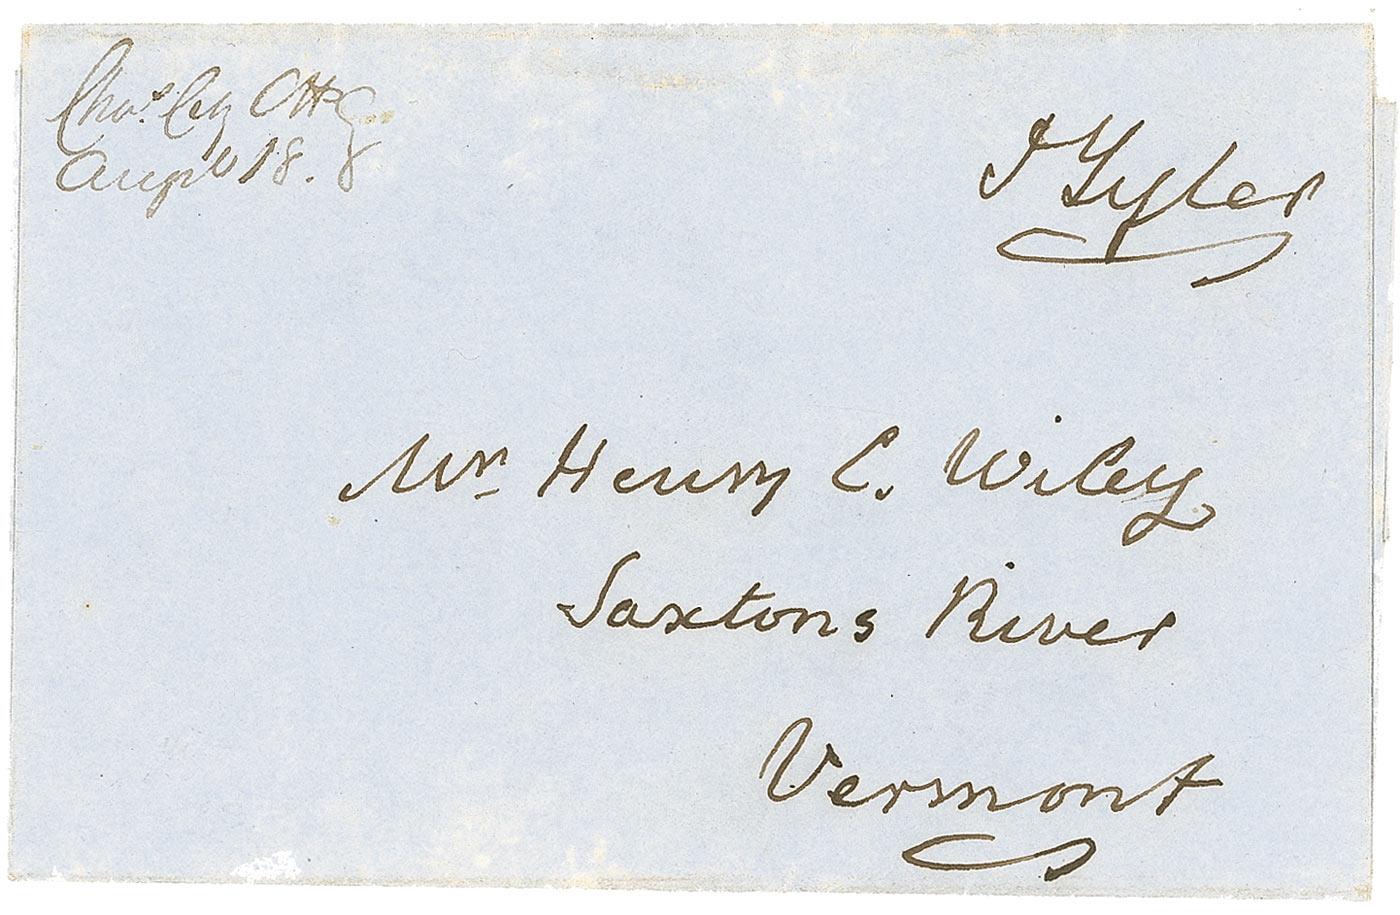 Chas. City C H
Augt 18.
J Tyler
Mr Henry C. Wiley
Saxtons River
Vermont